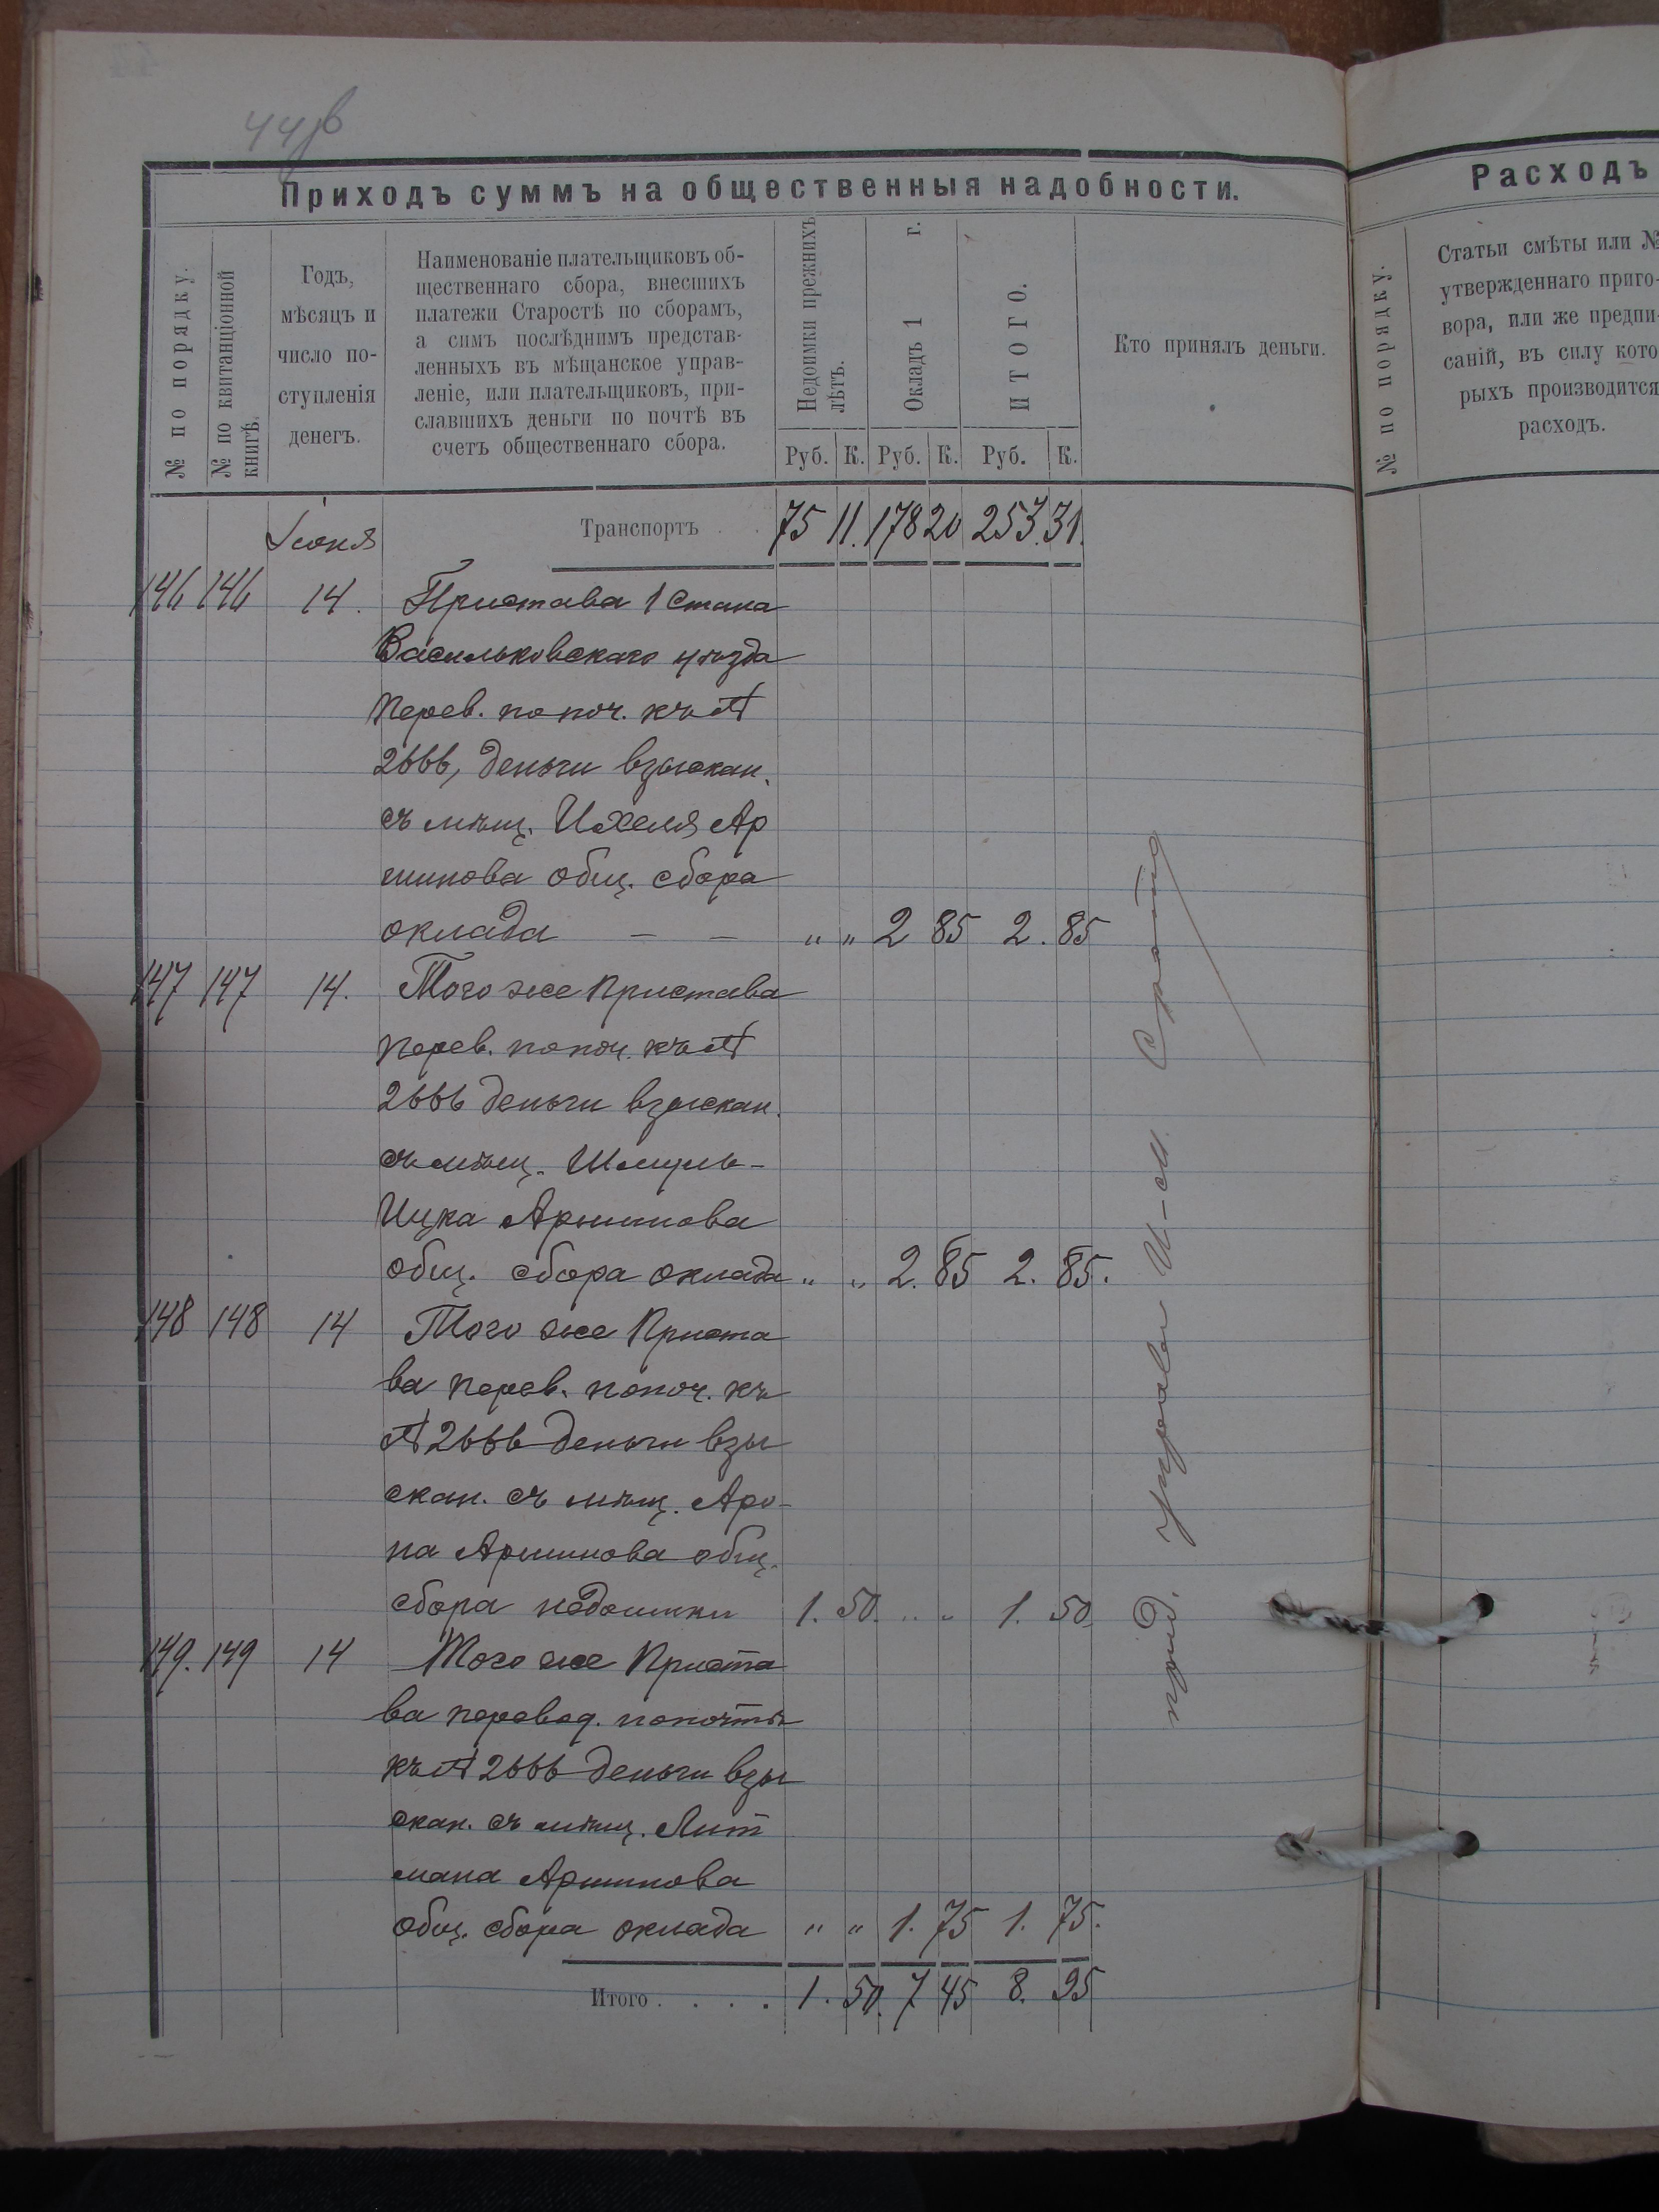 44 об
Приходъ суммъ на общественныя надобности.
№ по порядку.
№ по квитанціонной
книгѣ.
Годъ,
мѣсяцъ и
число по-
ступленія
денегъ.
Наименованіе плательщиковъ об-
щественнаго сбора, внесшихъ
платежи Старостѣ по сборамъ,
а симъ послѣднимъ представ-
ленныхъ въ мѣщанское управ-
леніе, или плательщиковъ, при-
славшихъ деньги по почтѣ въ
счетъ общественнаго сбора.
Недоимки прежнихъ
лѣтъ.
Окладъ 1 г.
ИТОГО.
Руб. К. Руб. К. Руб. К.
Кто принялъ деньги.
Іюня Транспортъ 75 11. 178 20 253. 31.
146 146 14. Пристава 1 Стана
Васильковскаго уѣзда
перев. по поч. къ №
2666, деньги взыскан.
съ мѣщ. Ихеля Ар
шинова общ. сбора
оклада — — „ „ 2 85 2. 85
147 147 14. Того же Пристава
перев. по поч. къ №
2666 деньги взыскан.
съ мѣщ. Шмуль-
Ицка Аршинова
общ. сбора оклада „ „ 2. 85 2. 85.
148 148 14 Того же Приста
ва перев. по поч. къ
№ 2666 деньги взы
скан. съ мѣщ. Аро-
на Аршинова общ.
сбора недоимки 1. 50. „ „ 1. 50.
149. 149 14 Того же Приста
ва перевод. по почтѣ
къ № 2666 деньги взы
скан. съ мѣщ. Лит
мана Аршинова
общ. сбора оклада „ „ 1. 75 1. 75.
Итого . . . . 1. 50. 7 45 8. 95
И-М.
Расходъ
№ по порядку.
Статьи смѣты или №
утвержденнаго приго-
вора, или же предпи-
саній, въ силу кото
рыхъ производится
расходъ.